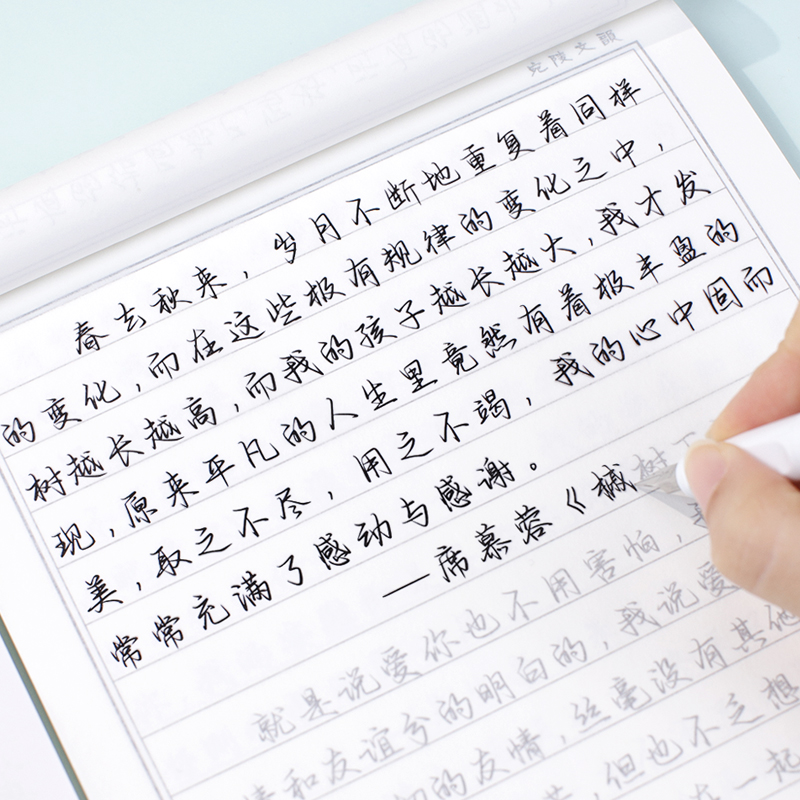 春去秋来，岁月不断地重复着同样
的变化，而在这些极有规律的变化之中，
树越长越高，而我的孩子越长越大，我才发
现，原来平凡的人生里竟然有着极丰盈的
美，取之不尽，用之不竭，我的心中因而
常常充满了感动与感谢。
—席慕蓉《槭树下
就是说爱你也不用害怕，
分的明白的，我说爱
情和友谊 丝毫没有其他
的友情， 但也不乏想
在一起